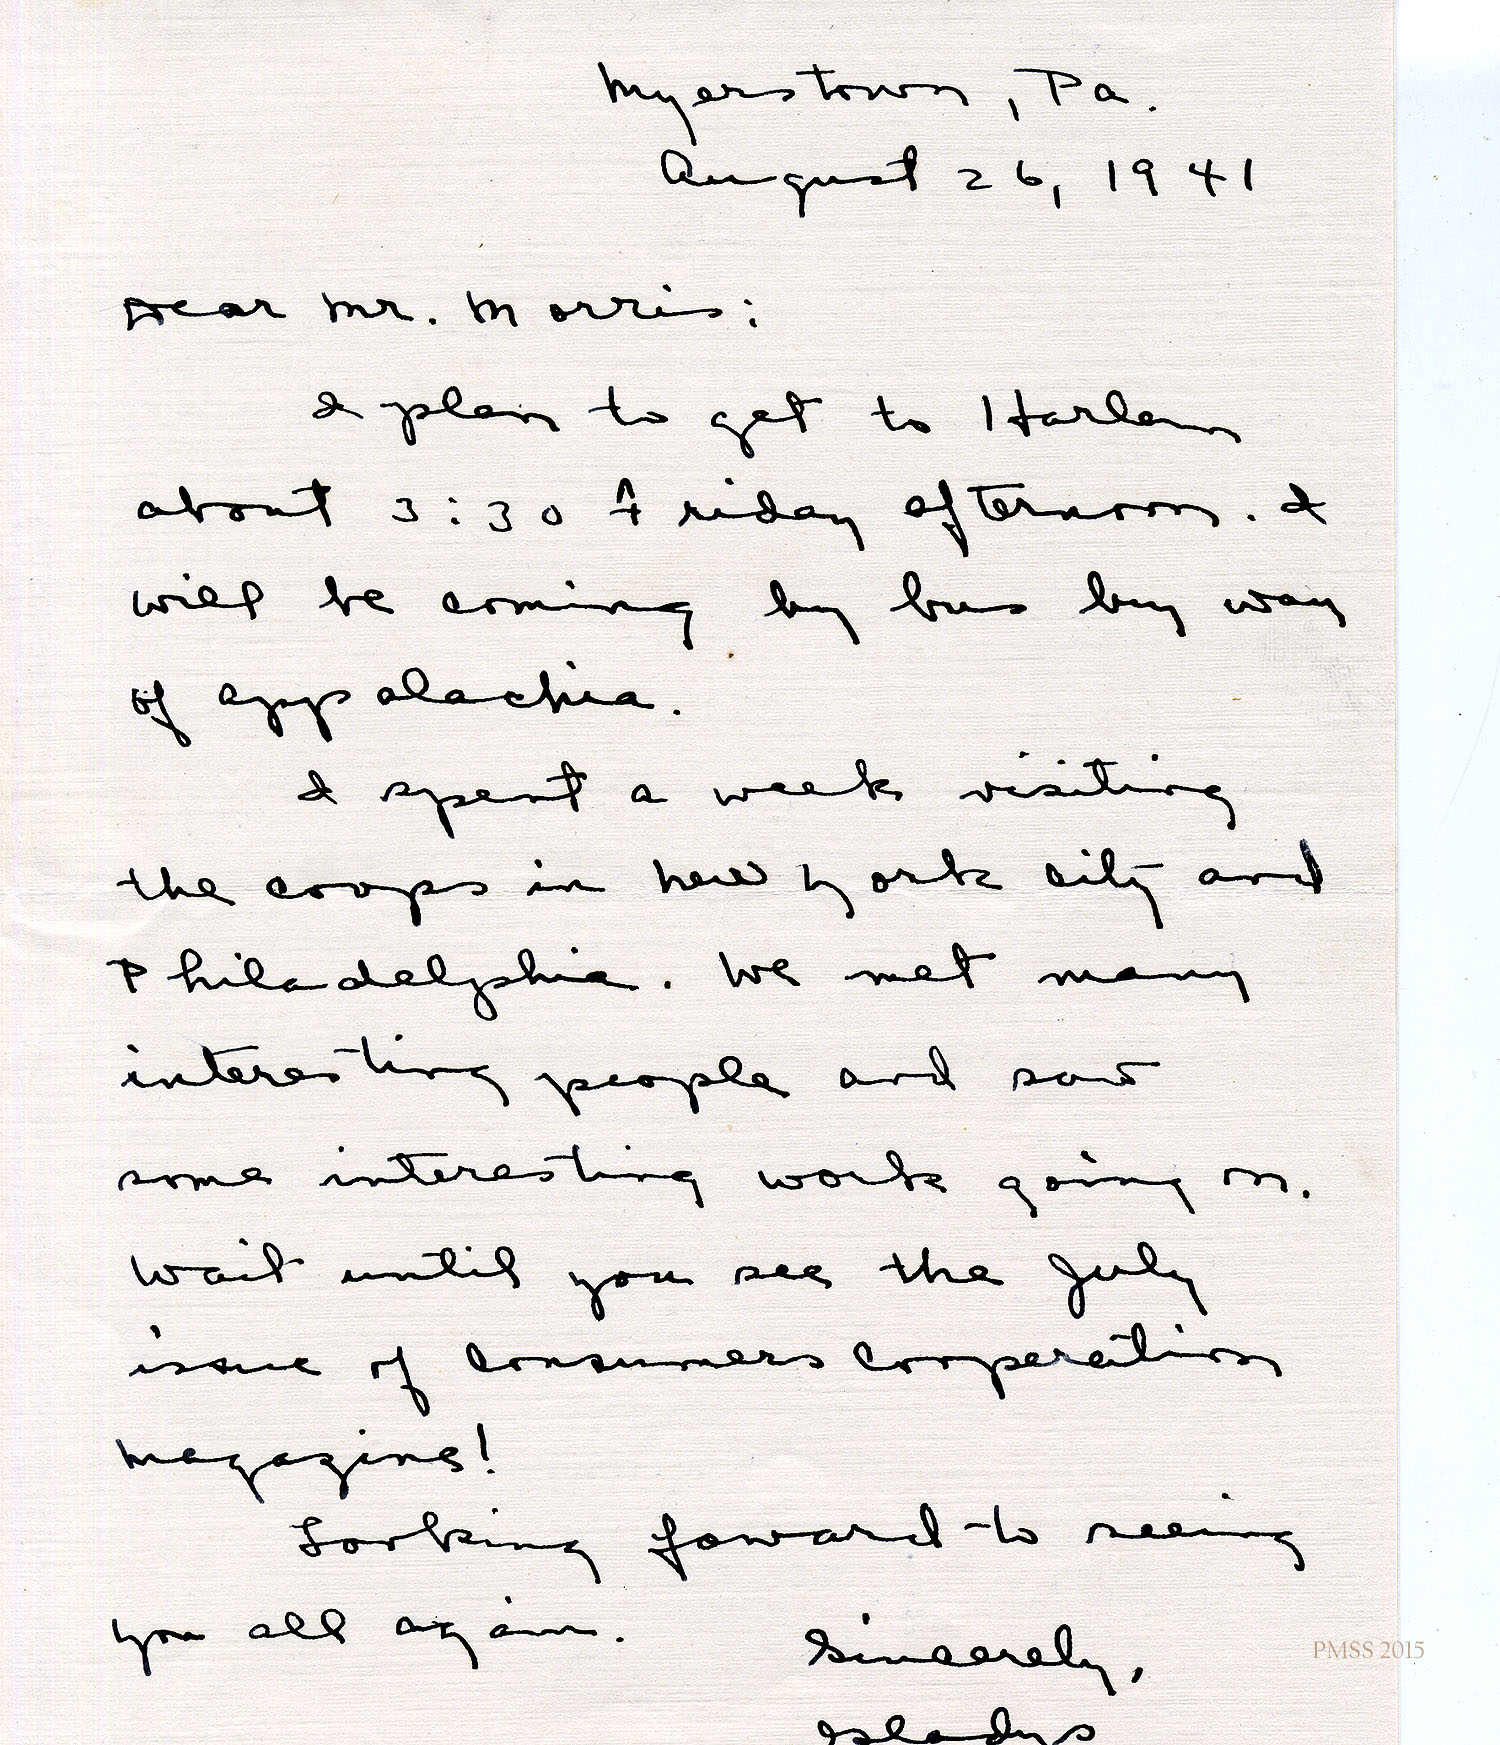 Myerstown, Pa.
August 26, 1941
Dear Mr. Morris:
I plan to get to Harlan
about 3:30 Friday afternoon. I
will be coming by bus by way
of Appalachia.
I spent a week visiting
the coops in New York City and
Philadelphia. We met many
interesting people and saw
some interesting work going on.
Wait until you see the July
issue of Consumers Cooperation
magazine!
Looking foward to seeing
you all again.
Sincerely,
Gladys
PMSS 2015